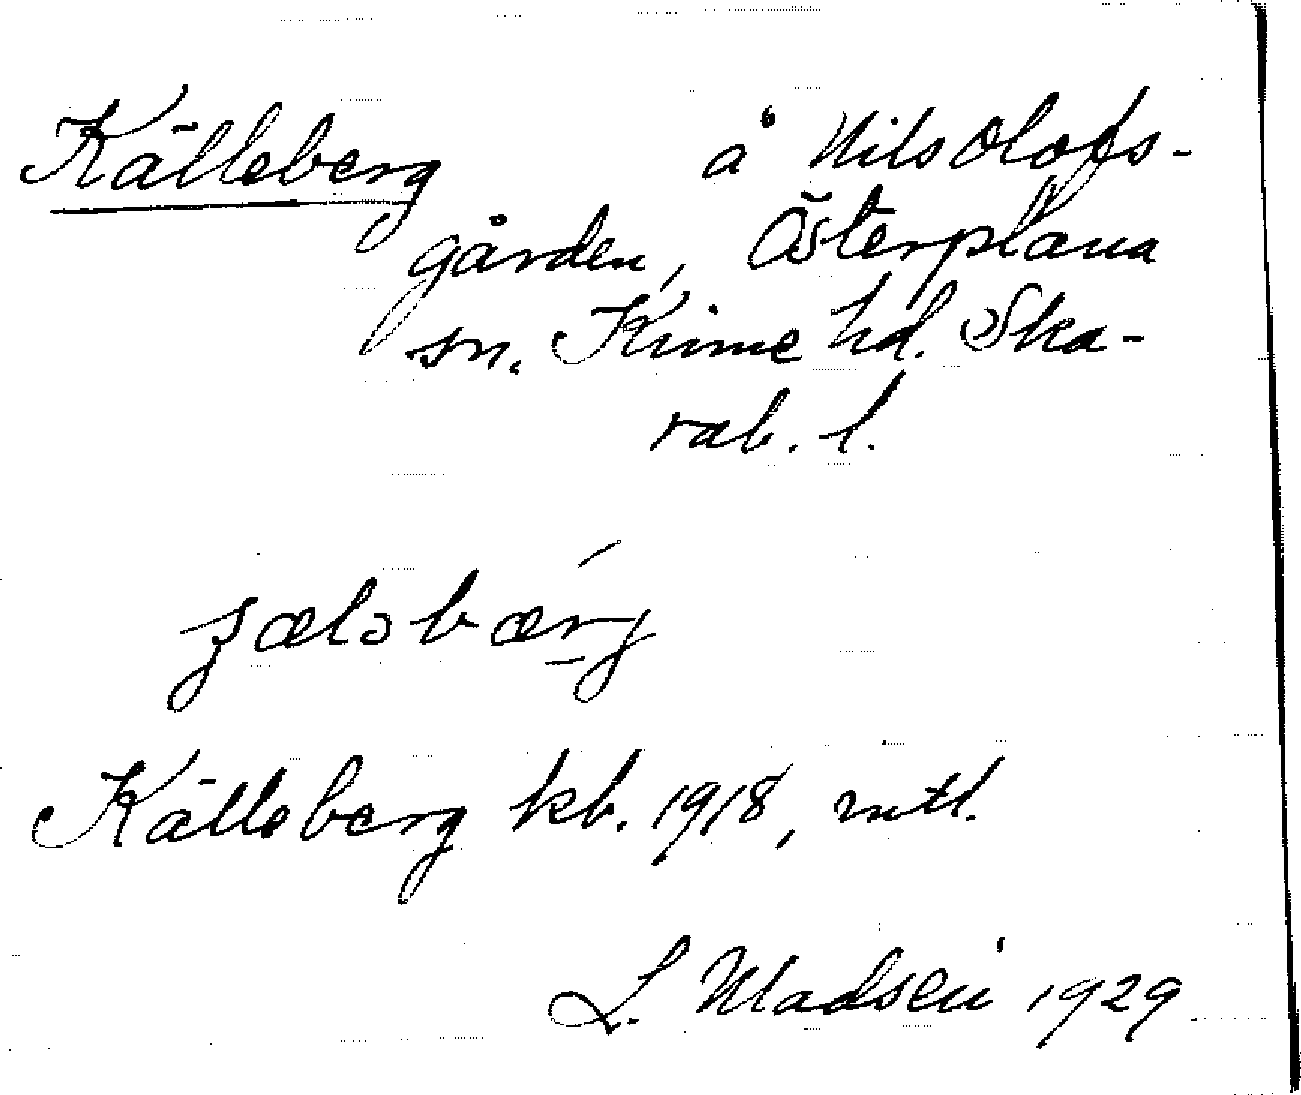 Källeberg å Nils Olofs-
gården, Österplana
sn. Kinne hd. Ska-
rab. l.
ʒæləbærg
Källeberg kb. 1918, mtl.
L. Madsén 1929